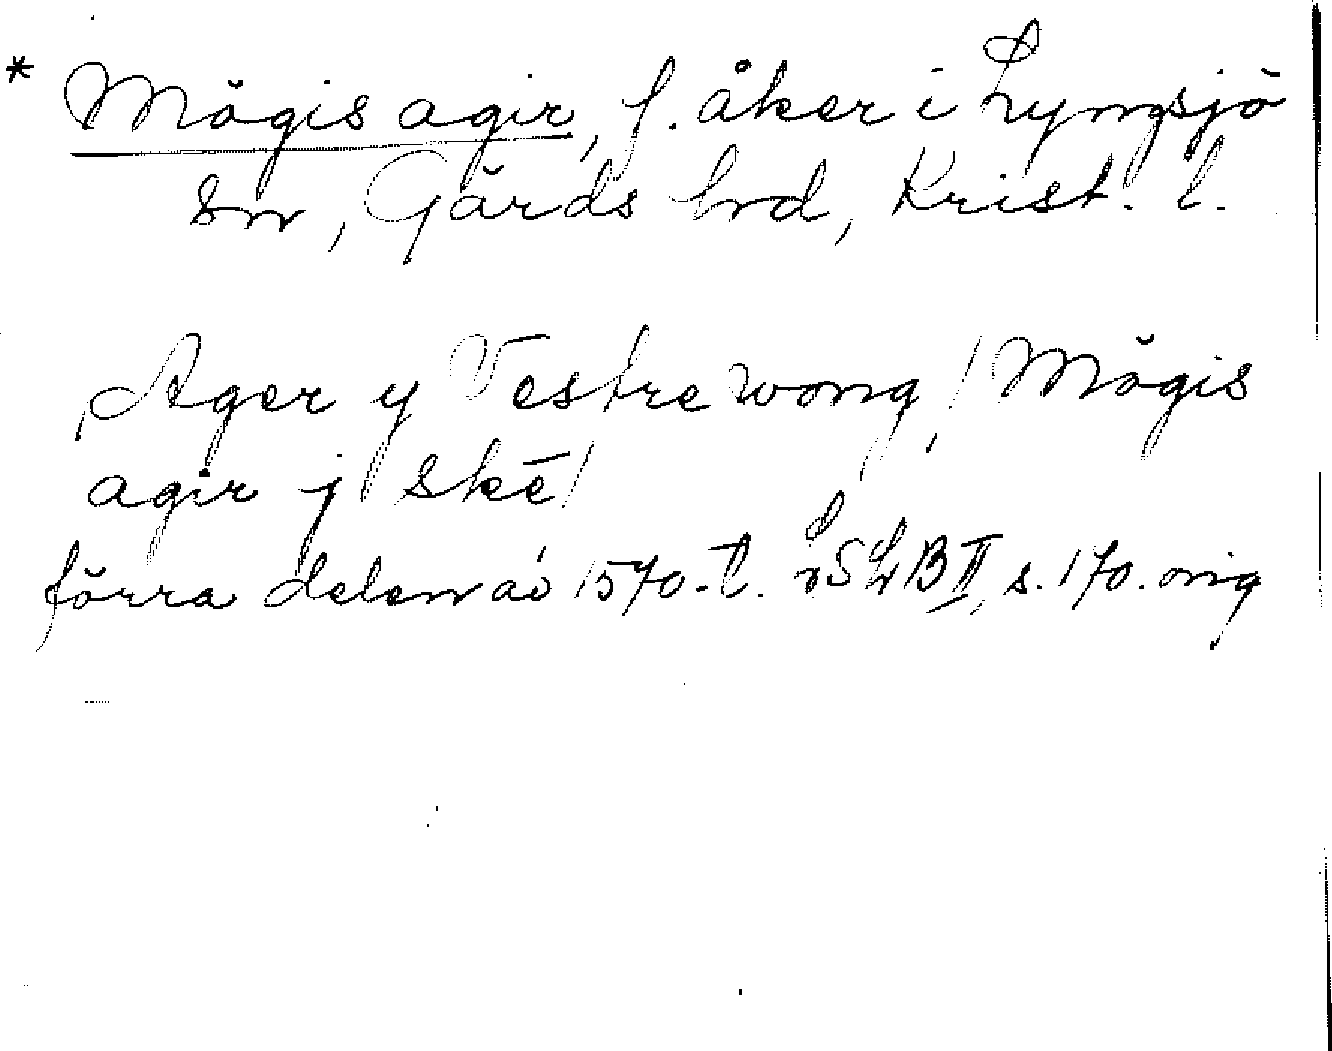 * Mögis agir, f. åker i Lyngsjö
sn, Gärds hrd, Krist. l.
Ager y Vestre wong / Mögis
agir j skē /
förra delen av 1570-t. LSLB II, s. 170. orig